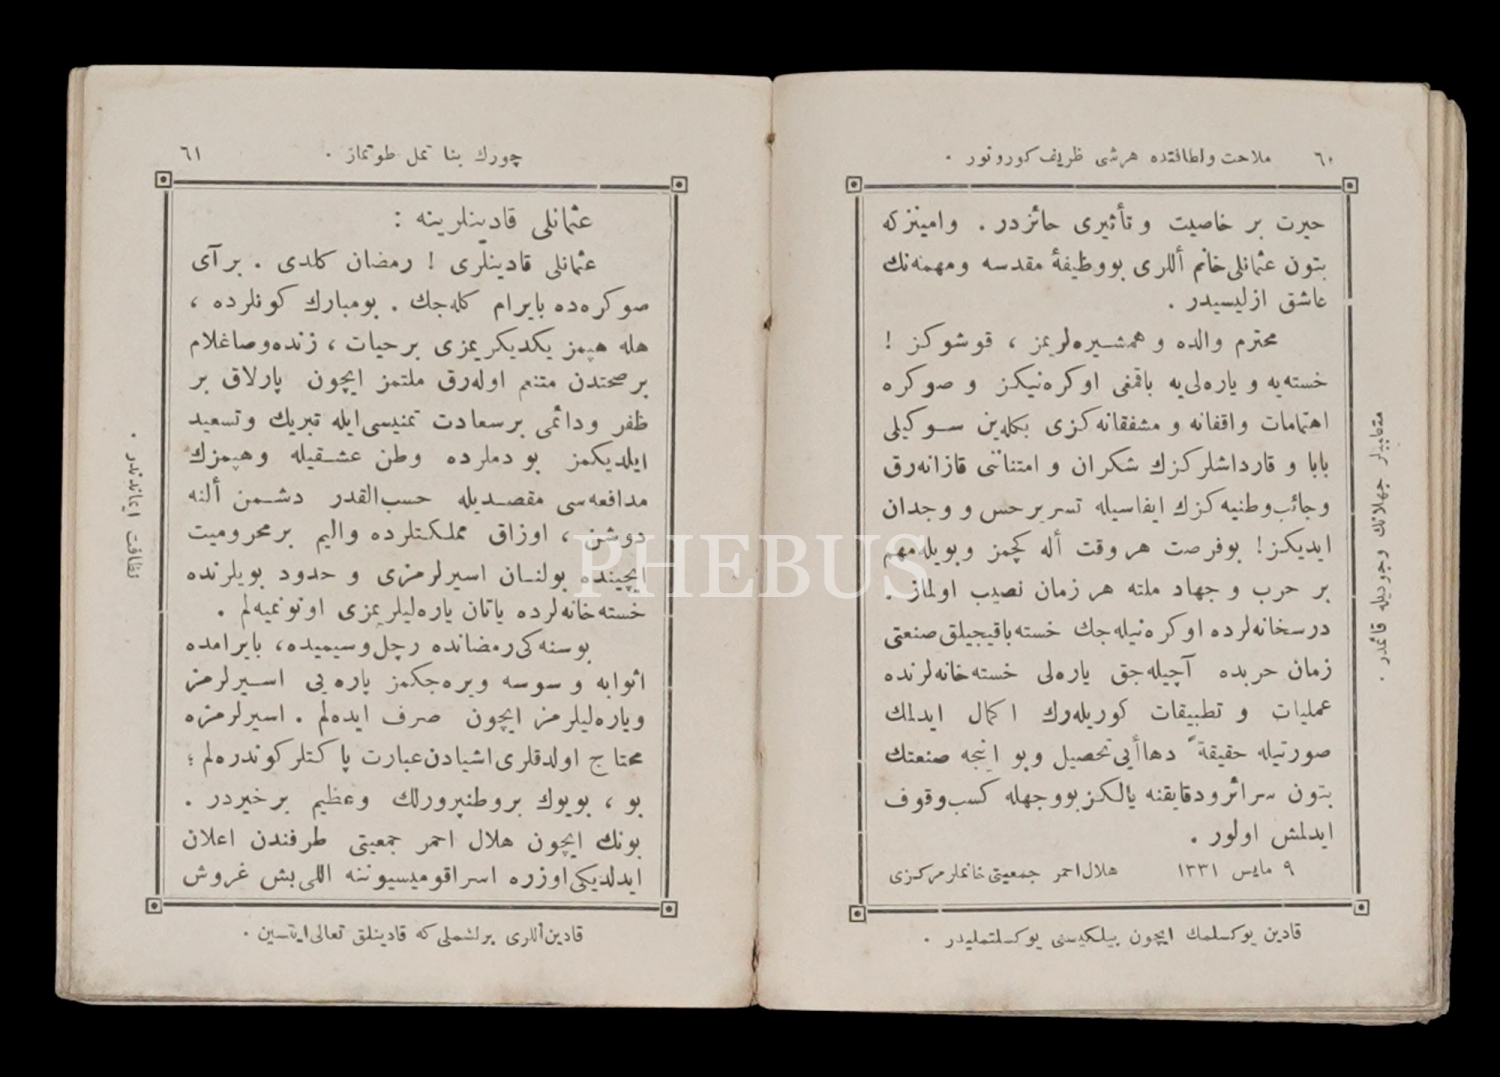 ٦٠
ملاحت و لطافتده هرشی ظریف کورونور .
حیرت بر خاصیت و تأثیری حائزدر . وامینزکه
بتون عثمانلی خانم أللری بووظیفهٔ مقدسه ومهمه‌نك
عاشق ازلیسیدر .
محترم والده و همشیره‌لریمز ، قوشوکز !
خسته‌یه و یاره‌لی‌یه باقمغی اوکره‌نیکز و صوکره
اهتمامات واقفانه و مشفقانه‌کزی بکله‌ین سوکیلی
بابا و قارداشلرکزك شکران و امتناننی قازانه‌رق
وجائب وطنیه‌کزك ایفاسیله تسریر حس و وجدان
ایدیکز ! بوفرصت هر وقت أله کچمز وبویله مهم
بر حرب و جهاد ملته هر زمان نصیب اولماز .
درسخانه‌لرده اوکره‌نیله‌جك خسته‌باقیجیلق صنعتی
زمان حربده آچیله‌جق یاره‌لی خسته‌خانه‌لرنده
عملیات و تطبیقات کوریله‌رك اکمال ایدلمك
صورتیله حقیقةً دها أیی تحصیل وبو اینجه صنعتك
بتون سرائر ودقایقنه یالکز بووجهله کسب وقوف
ایدلمش اولور .
٩ مایس ١٣٣١ هلال احمر جمعیتی خانملر مرکزی
قادین یوکسلمك ایچون بیلکیسنی یوکسلتملیدر .
جهلاتك وجودیله قائمدر .
٦١
چورك بنا تمل طوتماز .
عثمانلی قادینلرینه :
عثمانلی قادینلری ! رمضان کلدی . بر آی
صوکره‌ده بایرام کله‌جك . بومبارك کونلرده ،
هله هپمز یکدیکریمزی برحیات ، زنده وصاغلام
برصحتدن متنعم اوله‌رق ملتمز ایچون پارلاق بر
ظفر ودائمی برسعادت تمنیسی ایله تبریك وتسعید
ایلدیکمز بودملرده وطن عشقیله وهپمزك
مدافعه‌سی مقصدیله حسب‌القدر دشمن ألنه
دوشن ، اوزاق مملکتلرده والیم برمحرومیت
ایچینده بولنان اسیرلرمزی و حدود بویلرنده
خسته‌خانه‌لرده یاتان یاره‌لیلریمزی اونوتمیه‌لم .
بوسنه‌کی رمضانده رچل وسیمیده، بایرامده
اثوابه و سوسه ویره‌جکمز پاره‌یی اسیرلرمز
ویاره‌لیلرمز ایچون صرف ایده‌لم . اسیرلرمزه
محتاج اولدقلری اشیادن عبارت پاکتلر کوندره‌لم ؛
بو ، بویوك بروطنپرورلك وعظیم برخیردر .
بونك ایچون هلال احمر جمعیتی طرفندن اعلان
ایدلدیکی اوزره اسرا قومیسیوننه اللی بش غروش
قادین أللری برلشملی که قادینلق تعالی ایتسین .
نظافت ایماندندر .
PHEBUS